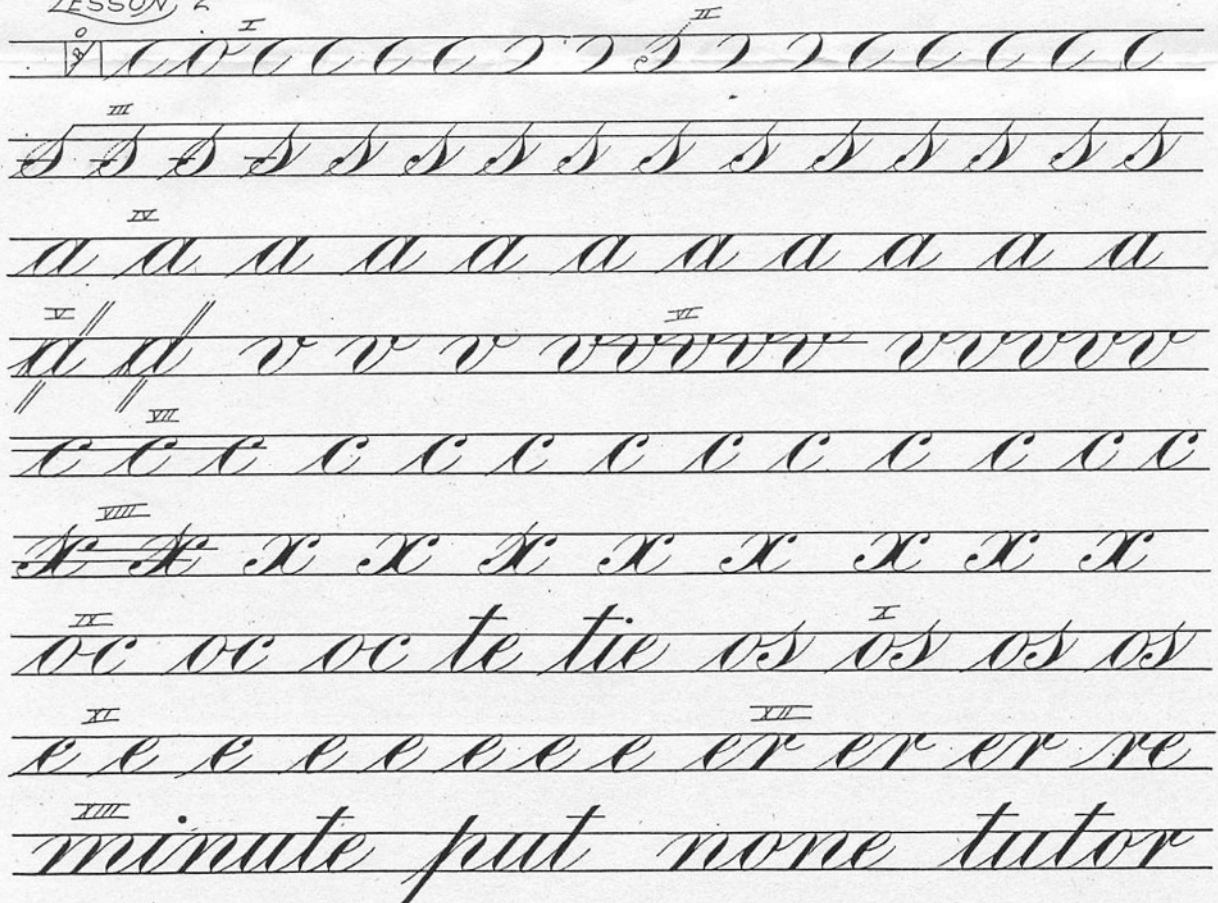 LESSON 2
I II
III
s s s s s s s s s s s s s s s
IV
a a a a a a a a a a a
V VI
d d v v v vvvvv vvvvv
VII
c c c c c c c c c c c c c
VIII
x x x x x x x x x x
IX X
oc oc oc te tie os os os os
XI XII
e e e e e e e e er er er re
XIII
minute put none tutor